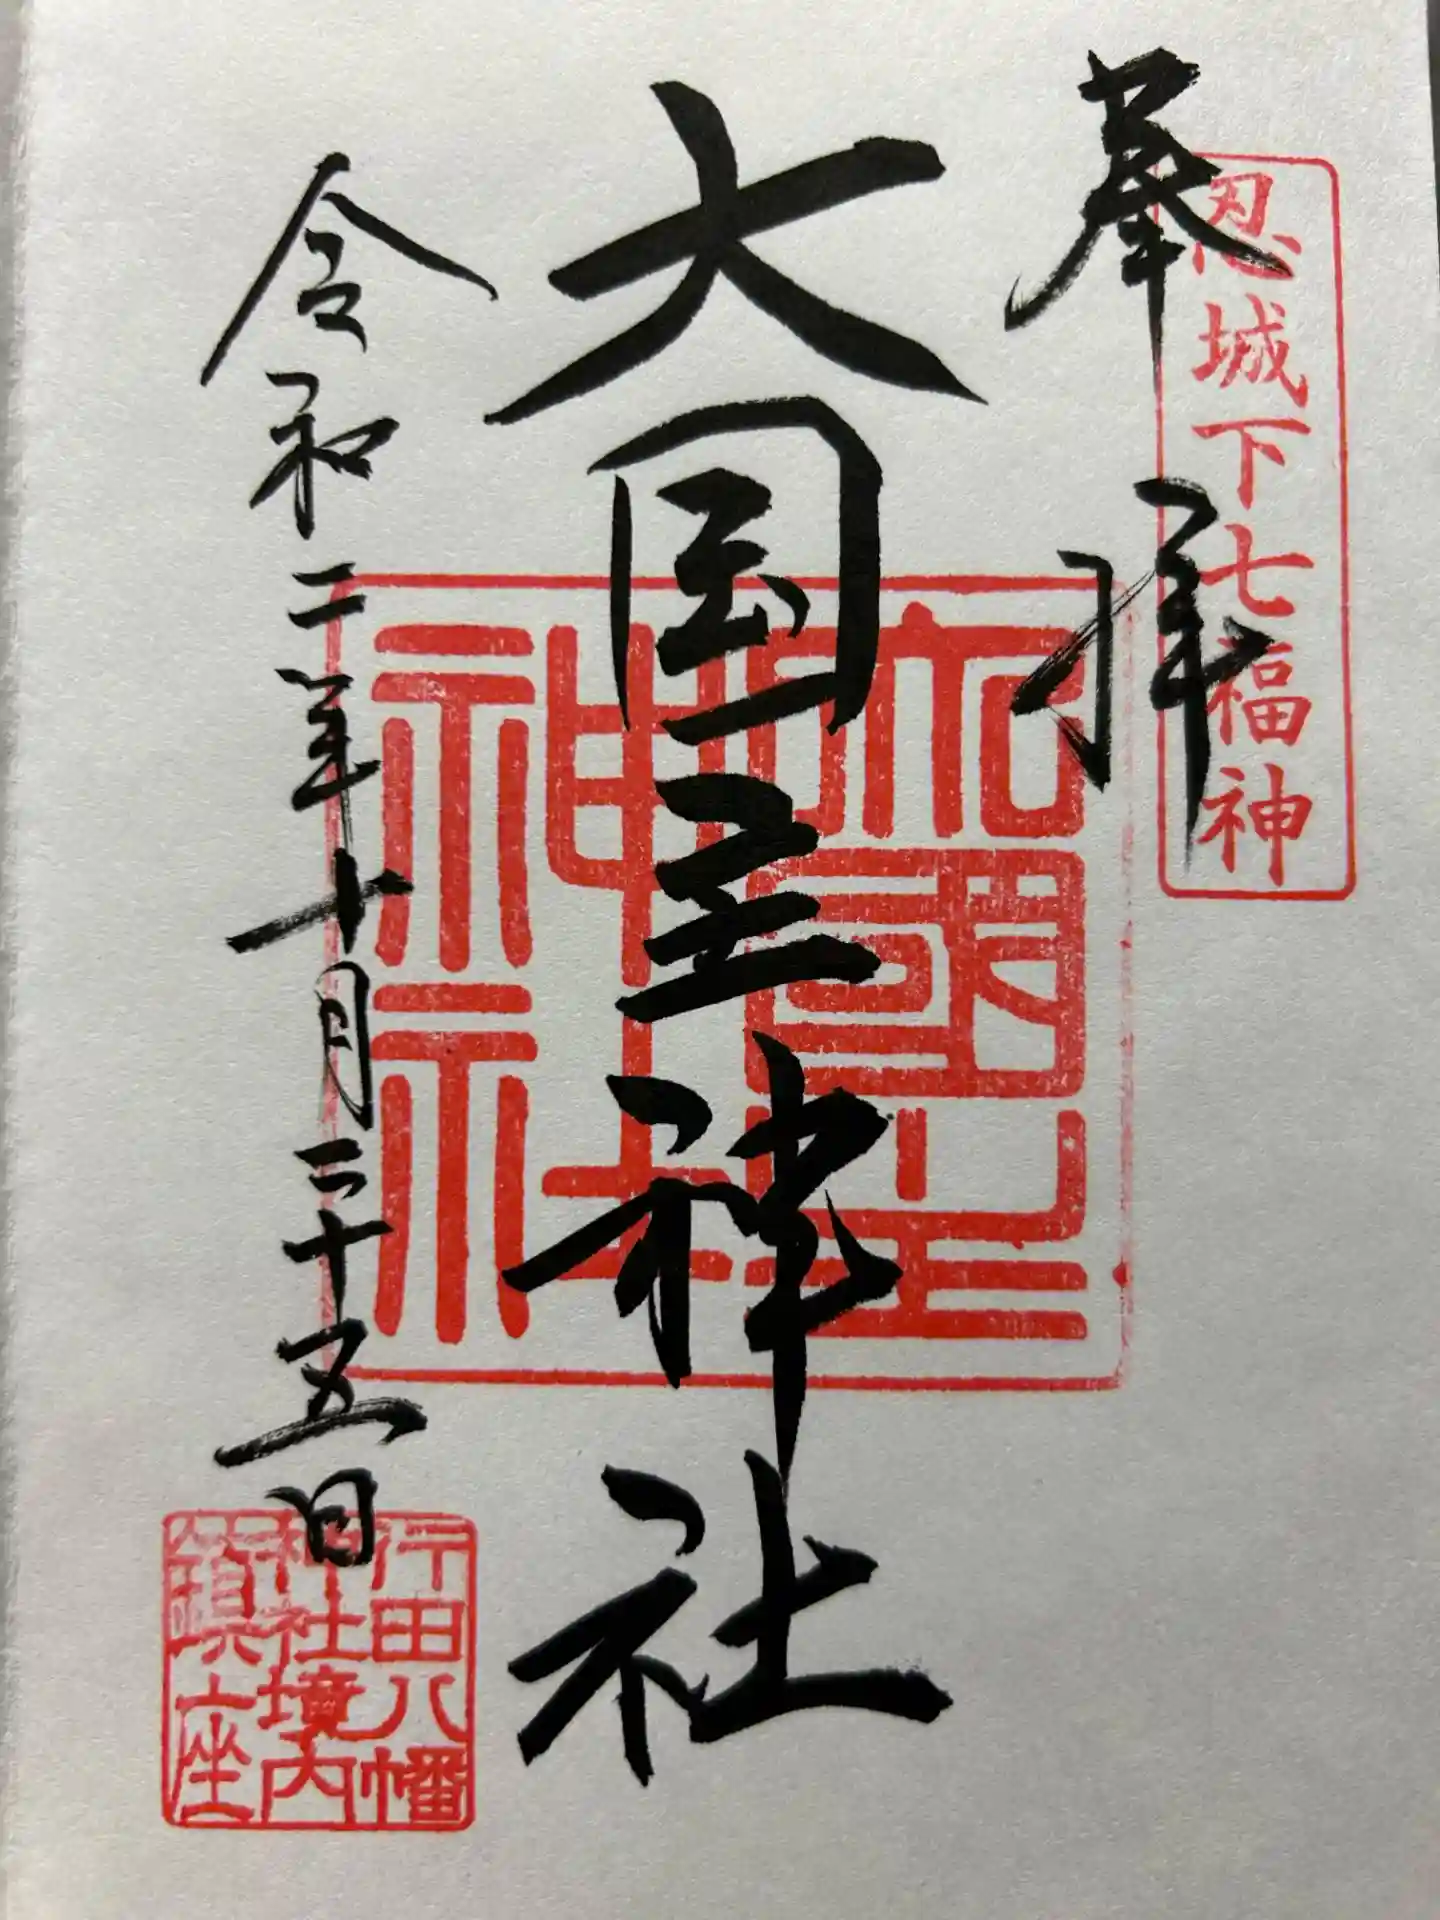 奉拝
忍城下七福神
大国主神社
大國主
神社
令和二年十月二十五日
行田八幡
神社境内
鎮座